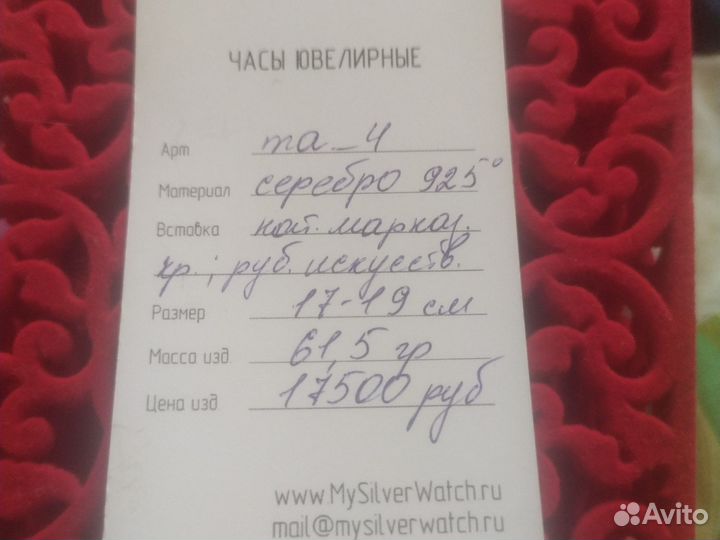 ЧАСЫ ЮВЕЛИРНЫЕ
Арт та-4
Материал серебро 925°
Вставка нат. марказ.
хр.; руб. искусств.
Размер 17-19 см
Масса изд. 61,5 гр
Цена изд. 17500 руб
www.MySilverWatch.ru
mail@mysilverwatch.ru
Avito